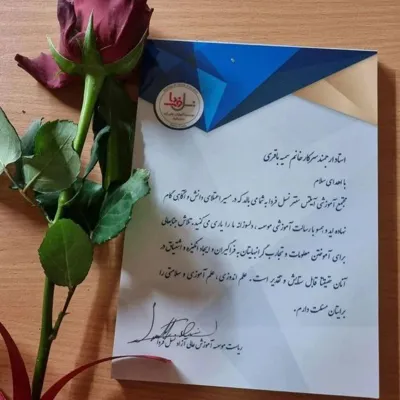 نسل فردا
استاد ارجمند سرکار خانم سمیه باقری
با اهدای سلام
مجتمع آموزشی آیتمس مفتخر نسل فردا به شما می بالد که در مسیر اعتلای دانش و آگاهی گام
نهاده اید و همسو با رسالت آموزشی موسسه ، دلسوزانه ما را یاری می کنید. تلاش جنابعالی
برای آموختن معلومات و تجارب گرانبهایتان به فراگیران و ایجاد انگیزه و اشتیاق در
آنان حقیقتا قابل ستایش و تقدیر است . علم اندوزی ، علم آموزی و سلامتی را
برایتان مسئلت دارم .
ریاست موسسه آموزش عالی آزاد نسل فردا